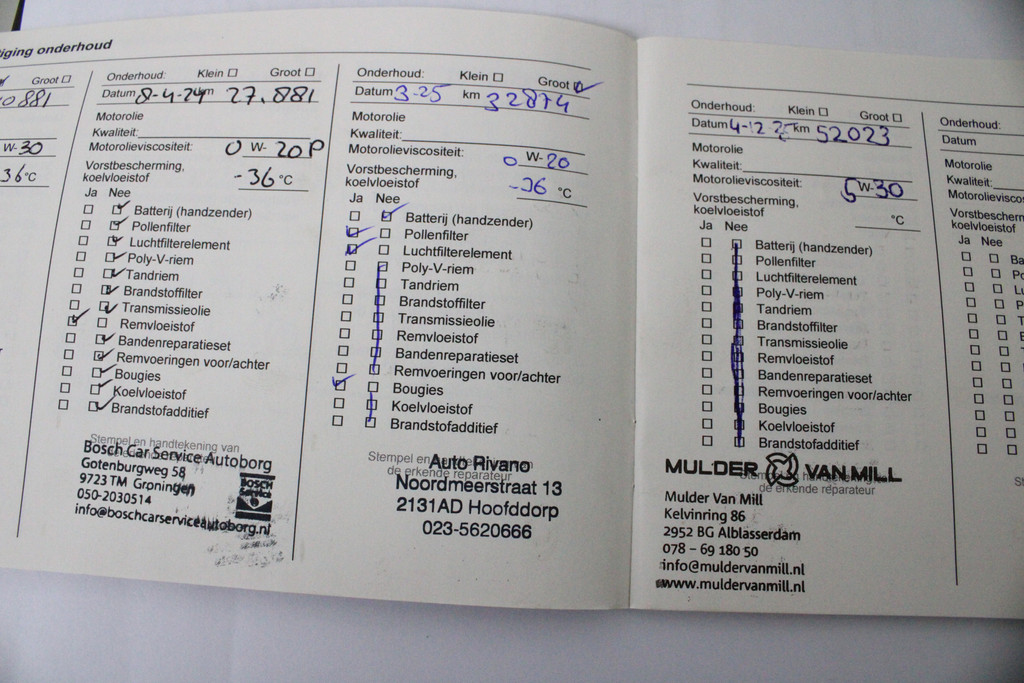 iging onderhoud
Groot
0881
W-30
36°C
Onderhoud: Klein Groot
Datum 8-4-24 km 27.881
Motorolie
Kwaliteit:
Motorolieviscositeit: 0 W-20P
Vorstbescherming,
koelvloeistof -36°C
Ja Nee
Batterij (handzender)
Pollenfilter
Luchtfilterelement
Poly-V-riem
Tandriem
Brandstoffilter
Transmissieolie
Remvloeistof
Bandenreparatieset
Remvoeringen voor/achter
Bougies
Koelvloeistof
Brandstofadditief
Stempel en handtekening van
Bosch Car Service Autoborg
Gotenburgweg 58
9723 TM Groningen
050-2030514
info@boschcarserviceautoborg.nl
BOSCH
Service
Onderhoud: Klein Groot
Datum 3-25 km 32874
Motorolie
Kwaliteit:
Motorolieviscositeit: 0 W-20
Vorstbescherming,
koelvloeistof -36 °C
Ja Nee
Batterij (handzender)
Pollenfilter
Luchtfilterelement
Poly-V-riem
Tandriem
Brandstoffilter
Transmissieolie
Remvloeistof
Bandenreparatieset
Remvoeringen voor/achter
Bougies
Koelvloeistof
Brandstofadditief
Stempel en
de erkende reparateur
Auto Rivano
Noordmeerstraat 13
2131AD Hoofddorp
023-5620666
Onderhoud: Klein Groot
Datum 4-12 25 km 52023
Motorolie
Kwaliteit:
Motorolieviscositeit: 5W-30
Vorstbescherming,
koelvloeistof °C
Ja Nee
Batterij (handzender)
Pollenfilter
Luchtfilterelement
Poly-V-riem
Tandriem
Brandstoffilter
Transmissieolie
Remvloeistof
Bandenreparatieset
Remvoeringen voor/achter
Bougies
Koelvloeistof
Brandstofadditief
MULDER VAN MILL
de erkende reparateur
Mulder Van Mill
Kelvinring 86
2952 BG Alblasserdam
078 - 69 180 50
info@muldervanmill.nl
www.muldervanmill.nl
Onderhoud:
Datum
Motorolie
Kwaliteit:
Motorolieviscos
Vorstbescherm
koelvloeistof
Ja Nee